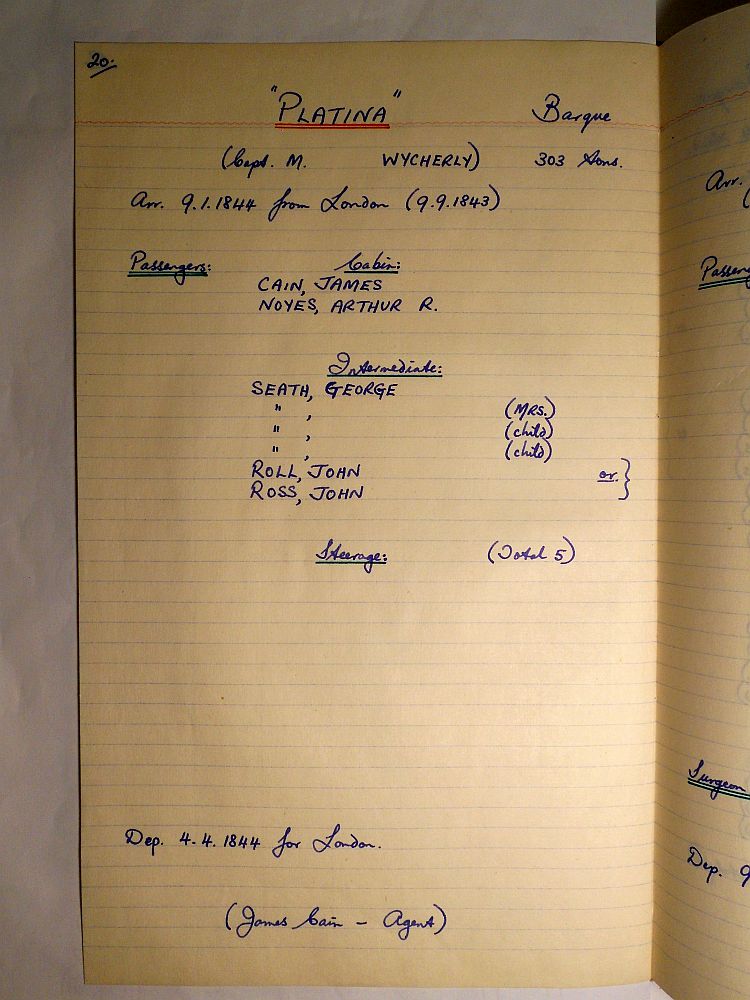 20.
"PLATINA" Barque
(Capt. M. WYCHERLY) 303 tons.
Arr. 9.1.1844 from London (9.9.1843)
Passengers: Cabin:
CAIN, JAMES
NOYES, ARTHUR R.
Intermediate:
SEATH, GEORGE
" , (MRS.)
" , (child)
" , (child)
ROLL, JOHN or. }
ROSS, JOHN
Steerage: (Total 5)
Dep. 4.4.1844 for London.
(James Cain - Agent)
Arr.
(
Passeng
Surgeon
Dep. 9